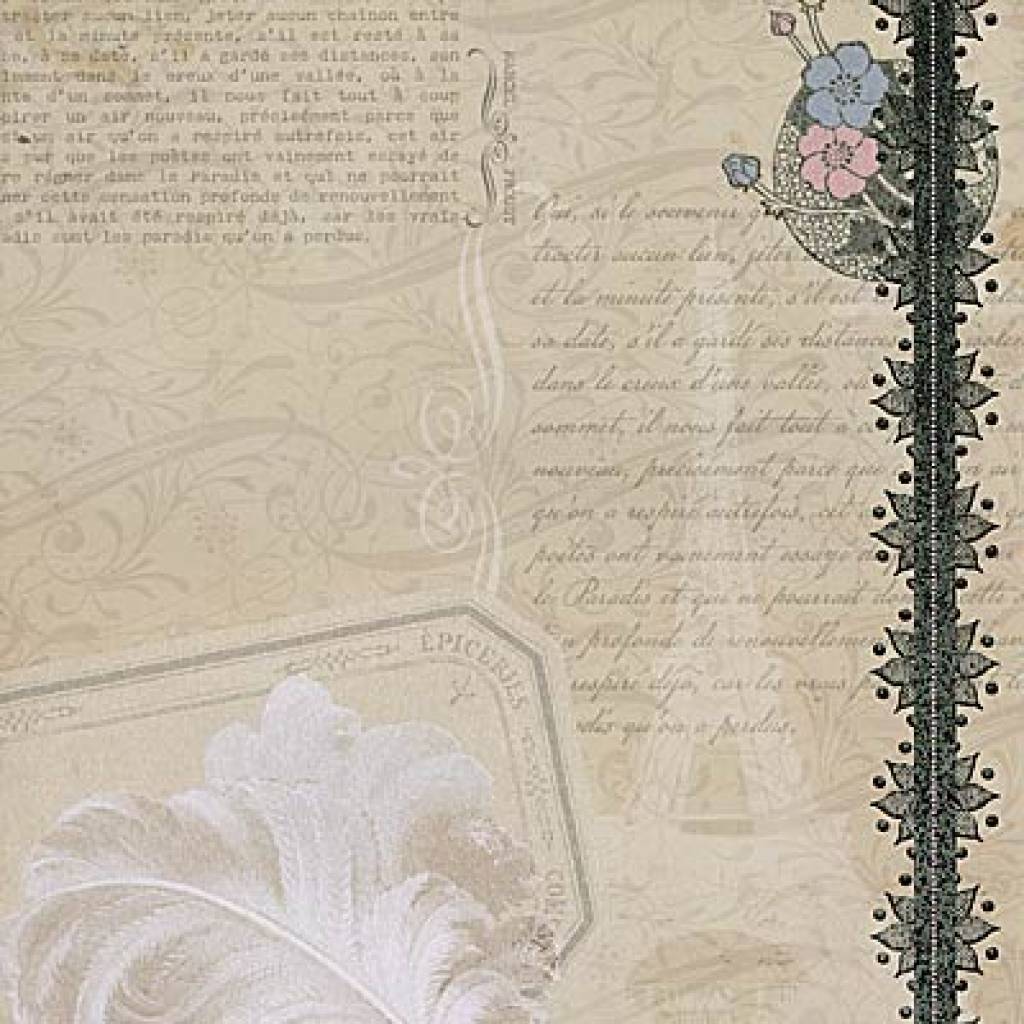 tracter aucun lien, jeter aucun chaînon entre
et la minute présente, s'il est resté à sa
, à sa date, s'il a gardé ses distances, son
lement dans le creux d'une vallée, où à la
nte d'un sommet, il nous fait tout à coup
pirer un air nouveau, précisément parce que
st un air qu'on a respiré autrefois, cet air
s pur que les poètes ont vainement essayé de
re régner dans le Paradis et qui ne pourrait
ner cette sensation profonde de renouvellement
s'il avait été respiré déjà, car les vrais
adis sont les paradis qu'on a perdus.
MARCEL PROUST
Oui, si le souvenir gr
tracter aucun lien, jeter
et la minute présente, s'il est
sa date, s'il a gardé ses distances isole
dans le creux d'une vallée, ou
sommet, il nous fait tout à co
nouveau, précisément parce que n air
qu'on a respiré autrefois, cet a
poètes ont vainement essayé
le Paradis et qui ne pourrait don
profonde de renouvellemen
respiré déjà, car les vrais p
dis qu'on a perdus.
ÉPICERIES